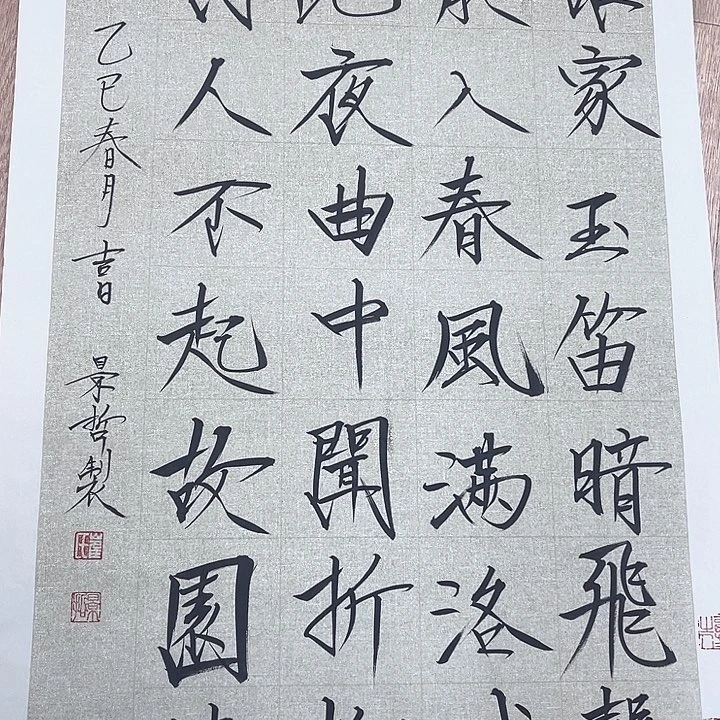 家玉笛暗飛
入春風滿洛
夜曲中聞折
人不起故園
乙巳春月吉日 景哲製